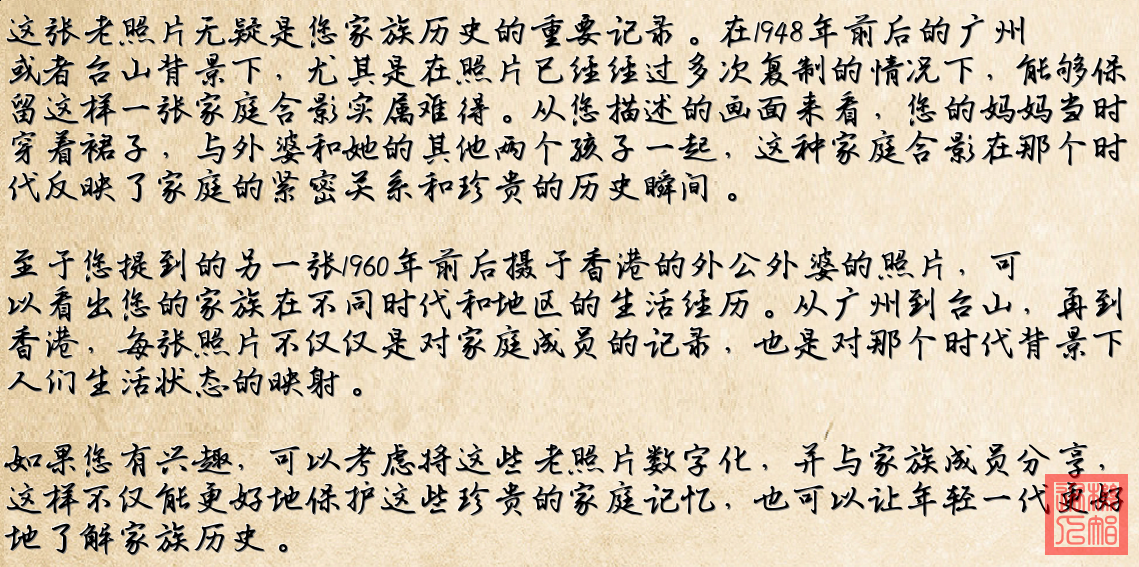 这张老照片无疑是您家族历史的重要记录。在1948年前后的广州
或者台山背景下，尤其是在照片已经经过多次复制的情况下，能够保
留这样一张家庭合影实属难得。从您描述的画面来看，您的妈妈当时
穿着裙子，与外婆和她的其他两个孩子一起，这种家庭合影在那个时
代反映了家庭的紧密关系和珍贵的历史瞬间。
至于您提到的另一张1960年前后摄于香港的外公外婆的照片，可
以看出您的家族在不同时代和地区的生活经历。从广州到台山，再到
香港，每张照片不仅仅是对家庭成员的记录，也是对那个时代背景下
人们生活状态的映射。
如果您有兴趣，可以考虑将这些老照片数字化，并与家族成员分享，
这样不仅能更好地保护这些珍贵的家庭记忆，也可以让年轻一代更好
地了解家族历史。